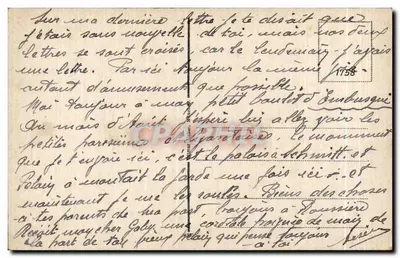 Sur ma dernière lettre je te disait que
j'étais sans nouvelle de toi, mais nos deux
lettres se sont croisés, car le lendemain j'avais
une lettre. Par ici toujour la même
1758
autant d'amusement que possible.
Moi toujour à mon petit boulot d'Embusqué
Au mois d'Août aller voir les
petites parisiennes
CPARAMA
monument
que je t'envoie ici, c'est le palais à Schmitt, et
à montait la garde une fois ici et
maintenant je me les Biens des choses
à tes parents de ma part, toujours à
Reçoit mon cher une cordiale poignée de main de
la part de ton vieux qui pense toujours
à toi